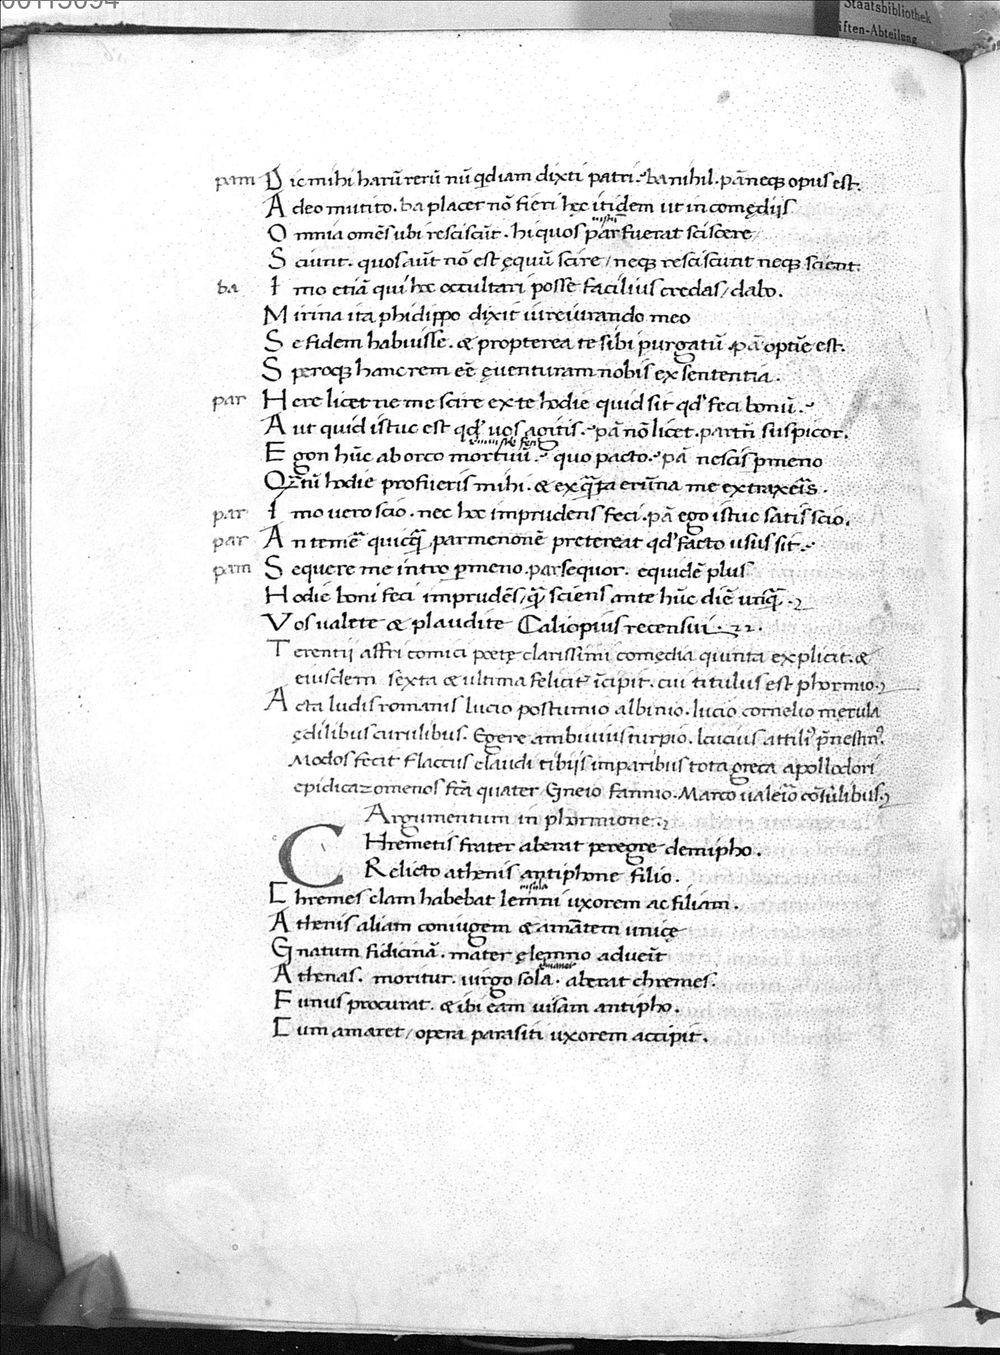 00115094
Staatsbibliothek
iften-Abteilung
pam Dic mihi harũ rerũ nũ qd iam dixti patri. ba nihil. pã neqꝫ opus est.
Adeo mutito. ba placet nõ fieri hęc itidem ut in comędiis
Omnia omẽs ubi resciscũt. hi quos par fuerat sciscere
Sciunt. quos aũt nõ est ęquũ scire / neqꝫ resciscunt neqꝫ scient.
ba Imo etiã qui hoc occultari posse facilius credas / dabo.
Mirina ita phidippo dixit iureiurando meo
Se fidem habuisse. & propterea te sibi purgatũ. pã optĩe est.
Speroqꝫ hanc rem eẽ ęuenturam nobis ex sententia.
par Here licet ne me scire ex te hodie quid sit qd' feci bonũ.
Aut quid istuc est qd' uos agitis. pã nõ licet. par tñ suspicor.
Egon hũc ab orco mortuũ. quo pacto. pã nescis pmeno
Quãtũ hodie profueris mihi. & ex q̃ta erũna me extraxeris.
par Imo uero scio. nec hoc imprudens feci. pã ego istuc satis scio.
par An temeꝛ̃ quicq̃ parmenonẽ pretereat qd' facto usus sit.
pam Sequere me intro pmeno. par sequor. equidẽ plus
Hodie boni feci imprudẽs / q̃ sciens ante hũc diẽ unq̃.
Vos ualete & plaudite Caliopius recensui.
Terentii affri comici poetę clarissimi comędia quinta explicit. &
eiusdem sexta & ultima felicit' ĩcipit. cui titulus est phormio.
Acta ludis romanis lucio postumio albinio. lucio cornelio merula
ędilibus curulibus. Egere ambiuius turpio. lucius attili' p̃nestin'.
Modos fecit flaccus claudi tibiis imparibus tota greca apollodori
epidicazomenos fcã quater Gneio fannio. Marco ualerio cõsulibus.
Argumentum in phormione.
CHremetis frater aberat peregre demipho.
Relicto athenis antiphone filio.
insula
Chremes clam habebat lemni uxorem ac filiam.
Athenis aliam coniugem & amãtem unicę
Gnatum fidicinã. mater ę lemno adueĩt
Athenas. moritur. uirgo sola. aberat chremes.
Funus procurat. & ibi eam uisam antipho.
Cum amaret / opera parasiti uxorem accipit.